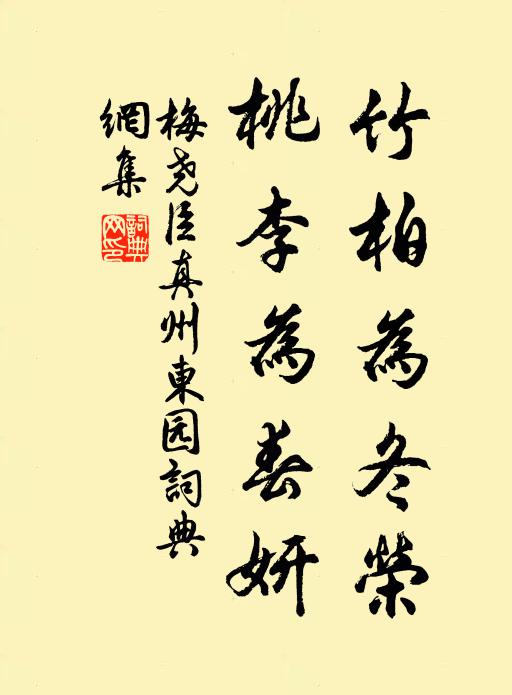 竹柏為冬榮
桃李為春妍
梅尧臣真州東园詞典
網集
詞典網印